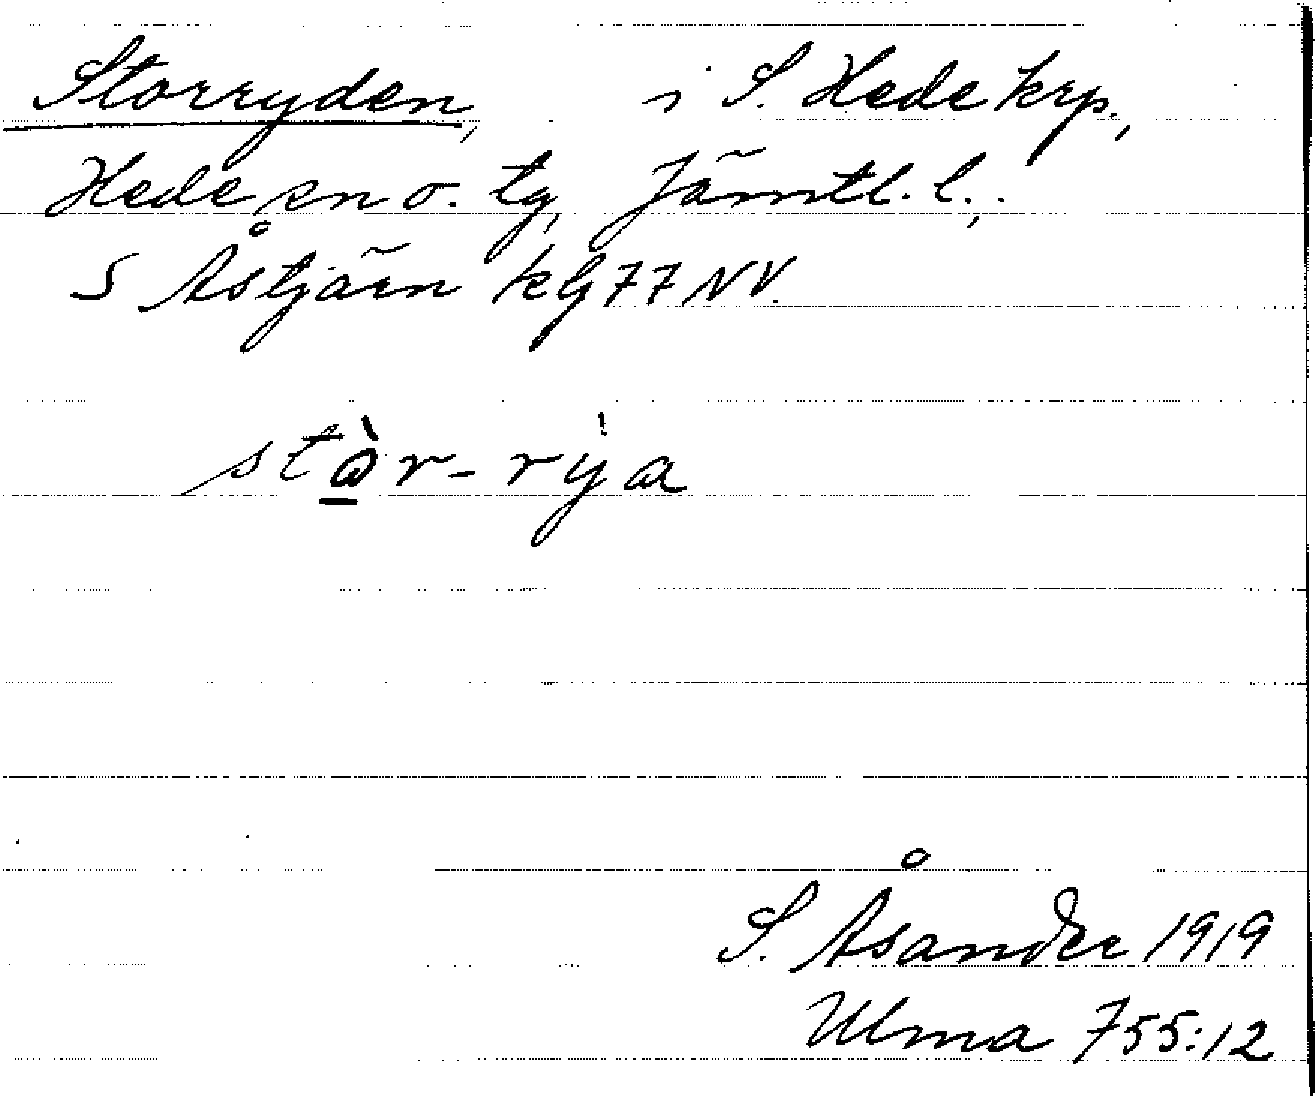 Storryden, i S. Hede krp.,
Hede sn o. tg, Jämtl. l.,
S Åstjärn kG77NV.
stɷ̀r-rỳa
S. Åsander 1919
Ulma 755:12